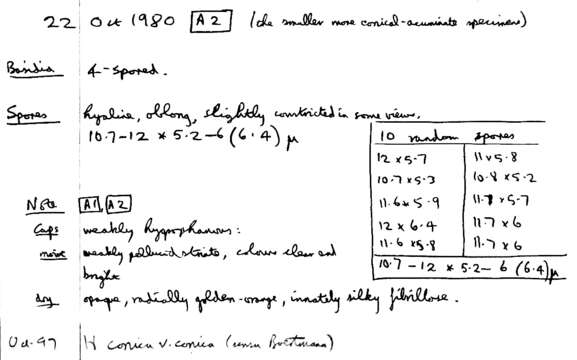 22 Oct 1980 A2 (the smaller more conical-acuminate specimens)
Basidia 4-spored.
Spores hyaline, oblong, slightly constricted in some views.
10.7-12 * 5.2-6 (6.4) μ
10 random spores
12 x 5.7 11 x 5.8
10.7 x 5.3 10.8 x 5.2
11.6 x 5.9 11.7 x 5.7
12 x 6.4 11.7 x 6
11.6 x 5.8 11.7 x 6
10.7-12 * 5.2-6 (6.4) μ
Note A1, A2
Caps weakly hygrophanous:
moist weakly pellucid striate, colours clear and
bright
dry opaque, radially golden-orange, innately silky fibrillose.
Oct-97 H conica v. conica (sensu Boertmann)